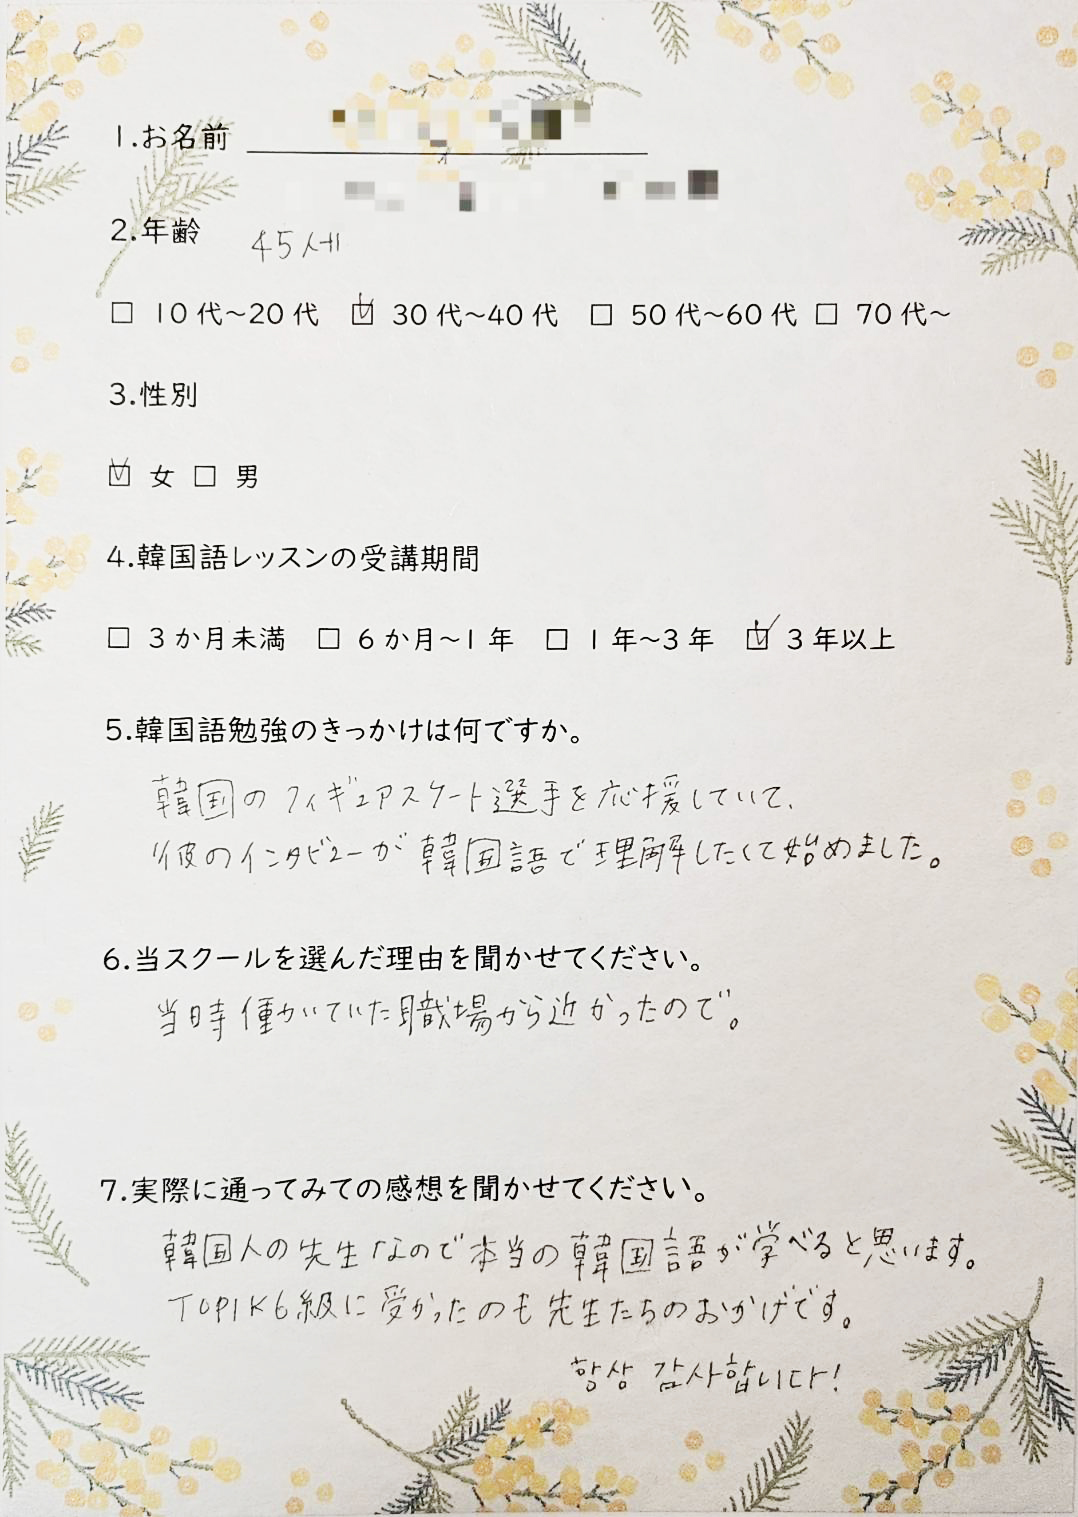 1.お名前
2.年齢 45세
□ 10代～20代 ☑ 30代～40代 □ 50代～60代 □ 70代～
3.性別
☑ 女 □ 男
4.韓国語レッスンの受講期間
□ 3か月未満 □ 6か月～1年 □ 1年～3年 ☑ 3年以上
5.韓国語勉強のきっかけは何ですか。
韓国のフィギュアスケート選手を応援していて、
彼のインタビューが韓国語で理解したくて始めました。
6.当スクールを選んだ理由を聞かせてください。
当時働いていた職場から近かったので。
7.実際に通ってみての感想を聞かせてください。
韓国人の先生なので本当の韓国語が学べると思います。
TOPIK6級に受かったのも先生たちのおかげです。
항상 감사합니다!